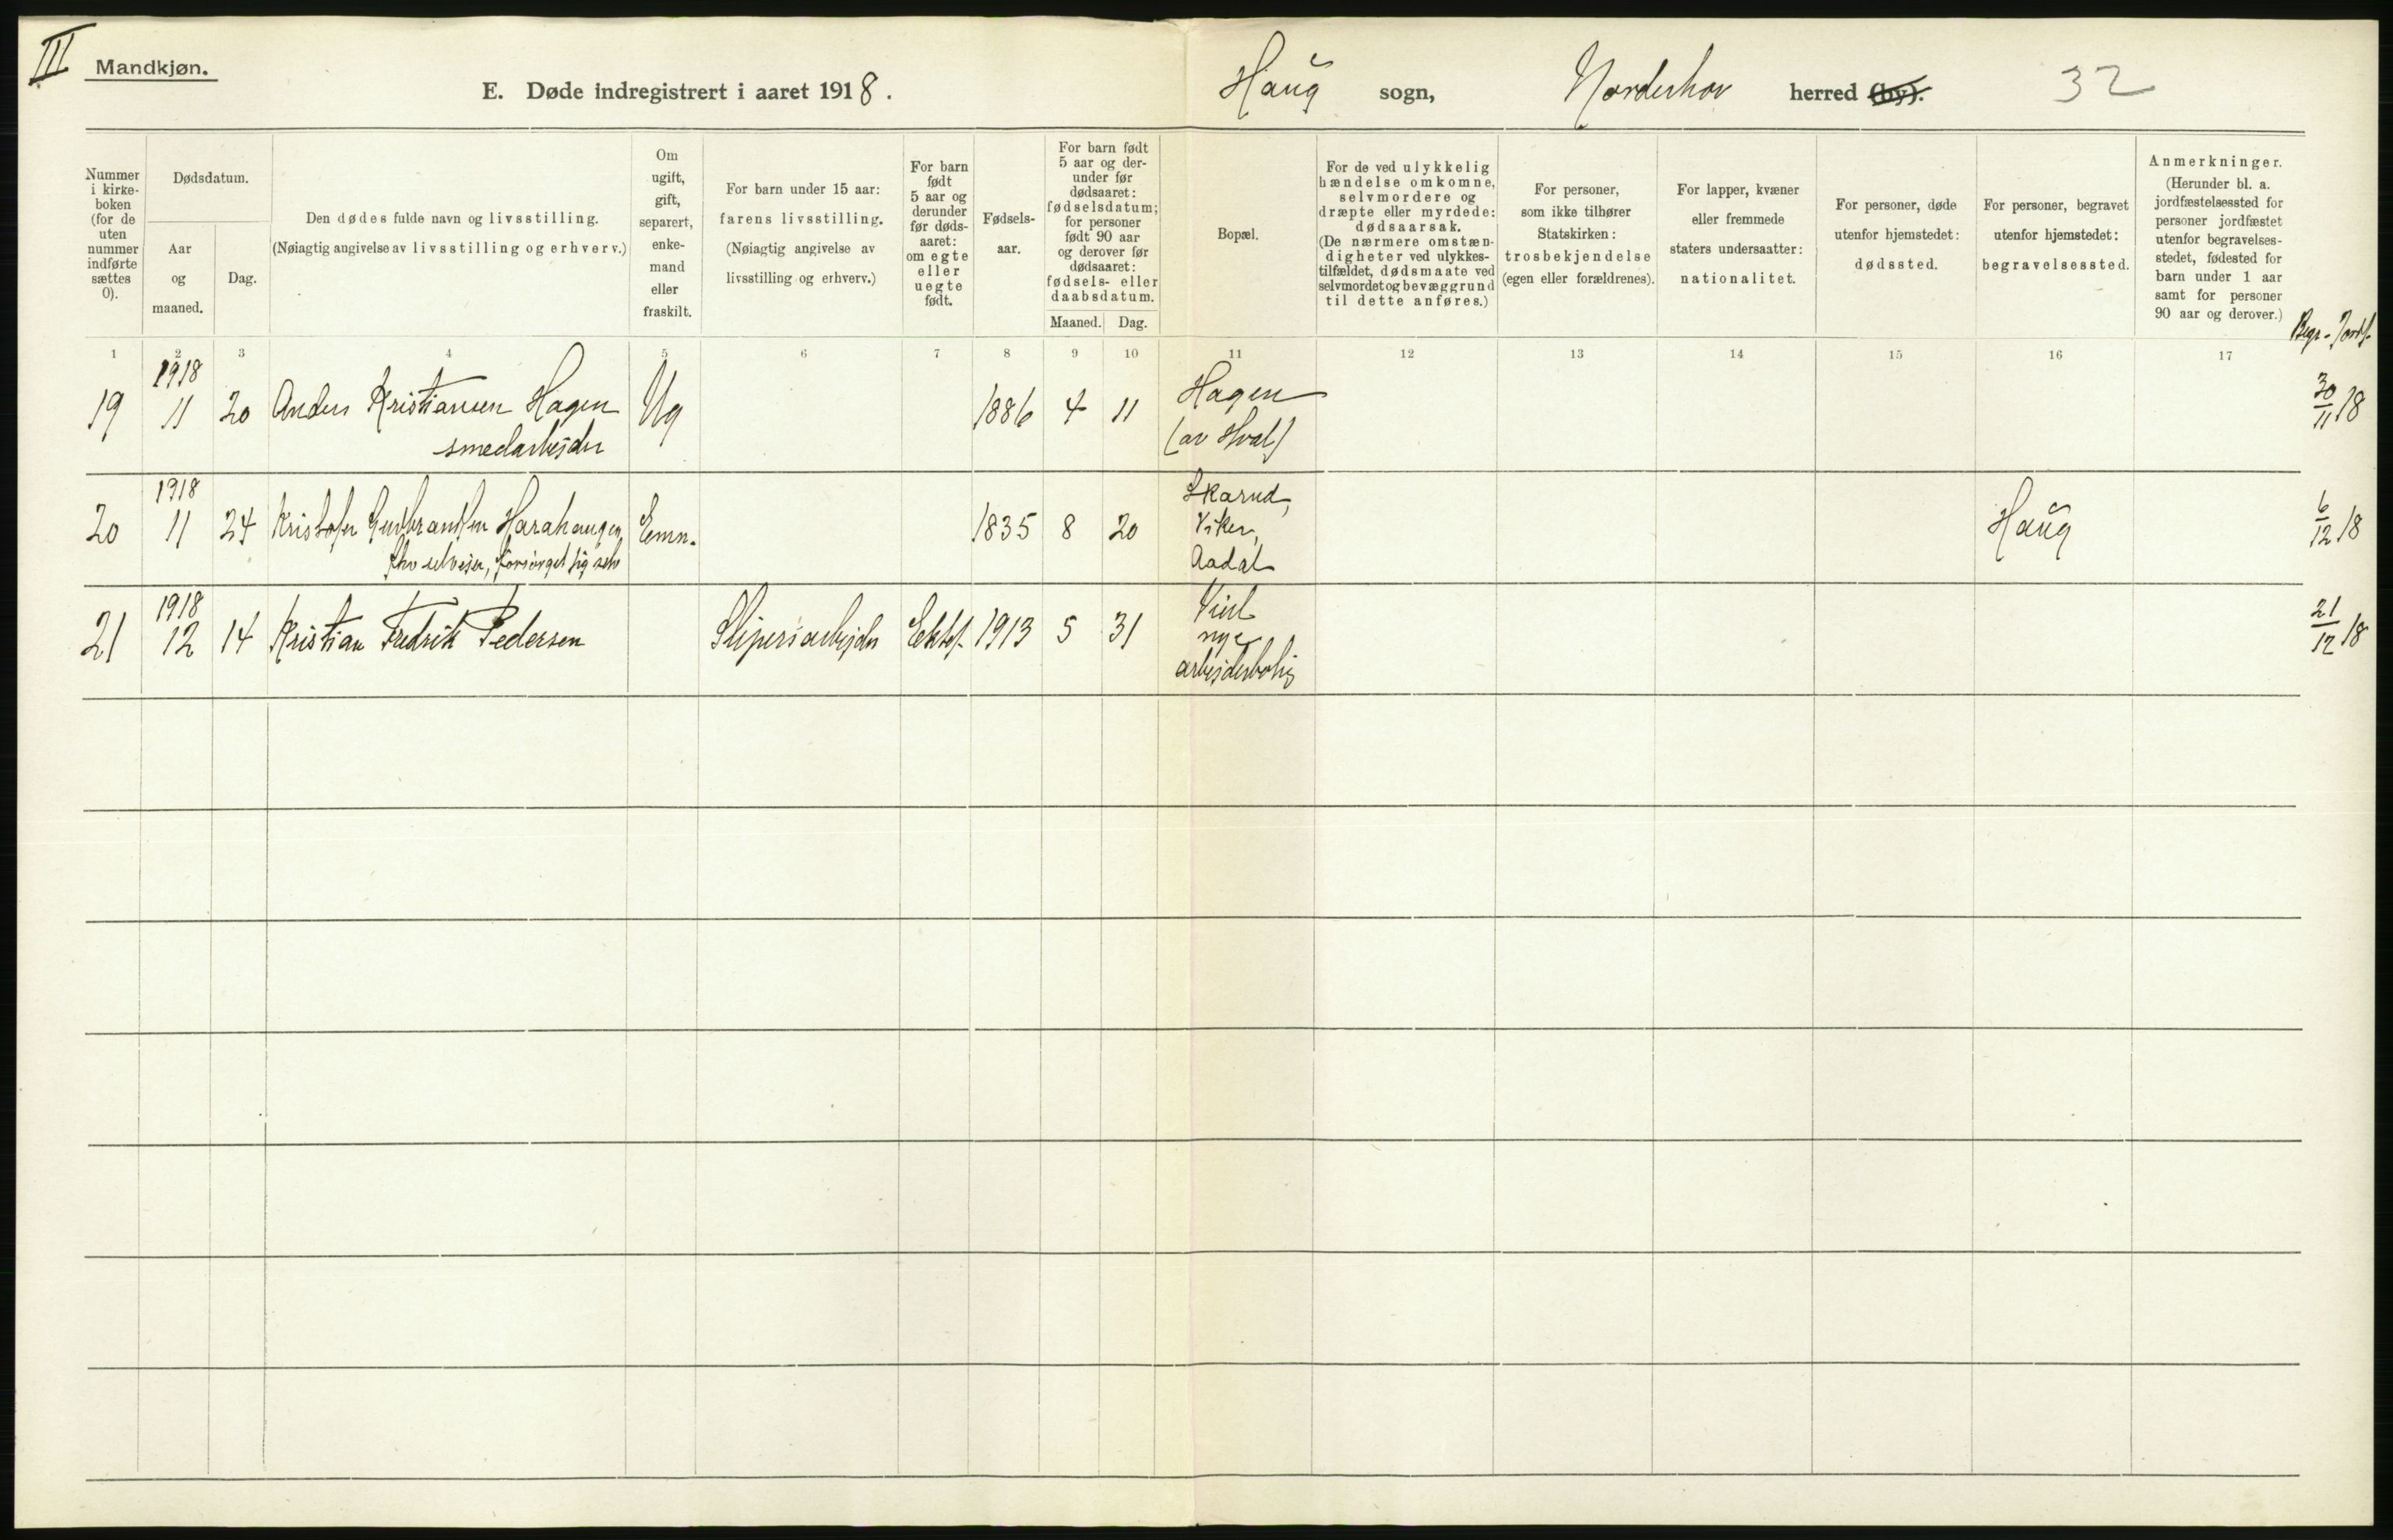 III
Mandkjøn.
E. Døde indregistrert i aaret 1918.
Haug sogn, Norderhov herred (by). 32
Nummer i kirke- boken (for de uten nummer indførte sættes 0).
Dødsdatum.
Aar og maaned.
Dag.
Den dødes fulde navn og livsstilling.
(Nøiagtig angivelse av livsstilling og erhverv.)
Om ugift, gift, separert, enke- mand eller fraskilt.
For barn under 15 aar:
farens livsstilling.
(Nøiagtig angivelse av
livsstilling og erhverv.)
For barn født 5 aar og derunder før døds- aaret: om egte eller uegte født.
Fødsels- aar.
For barn født 5 aar og der- under før dødsaaret: fødselsdatum; for personer født 90 aar og derover før dødsaaret: fødsels- eller daabsdatum.
Maaned. Dag.
Bopæl.
For de ved ulykkelig hændelse omkomne, selvmordere og dræpte eller myrdede: dødsaarsak. (De nærmere omstæn- digheter ved ulykkes- tilfældet, dødsmaate ved selvmordet og bevæggrund til dette anføres.)
For personer, som ikke tilhører Statskirken: trosbekjendelse (egen eller forældrenes).
For lapper, kvæner eller fremmede staters undersaatter: nationalitet.
For personer, døde utenfor hjemstedet: dødssted.
For personer, begravet utenfor hjemstedet: begravelsessted.
Anmerkninger. (Herunder bl. a. jordfæstelsessted for personer jordfæstet utenfor begravelses- stedet, fødested for barn under 1 aar samt for personer 90 aar og derover.)
Begr.- Jordf.
1 2 3 4 5 6 7 8 9 10 11 12 13 14 15 16 17
1918
19 11 20 Anders Kristiansen Hagen Ug 1886 4 11 Hagen 30/11 18
smedarbejder (av Hval)
1918 Skarud,
20 11 24 Kristofer Gudbrandsen Harahaugen Emn. 1835 8 20 Viker, Haug 6/12 18
selveier, forsørget sig selv Aadal
1918
21 12 14 Kristian Fredrik Pedersen Sliperiarbejder Ektef. 1913 5 31 21/12 18
nye
arbejderbolig